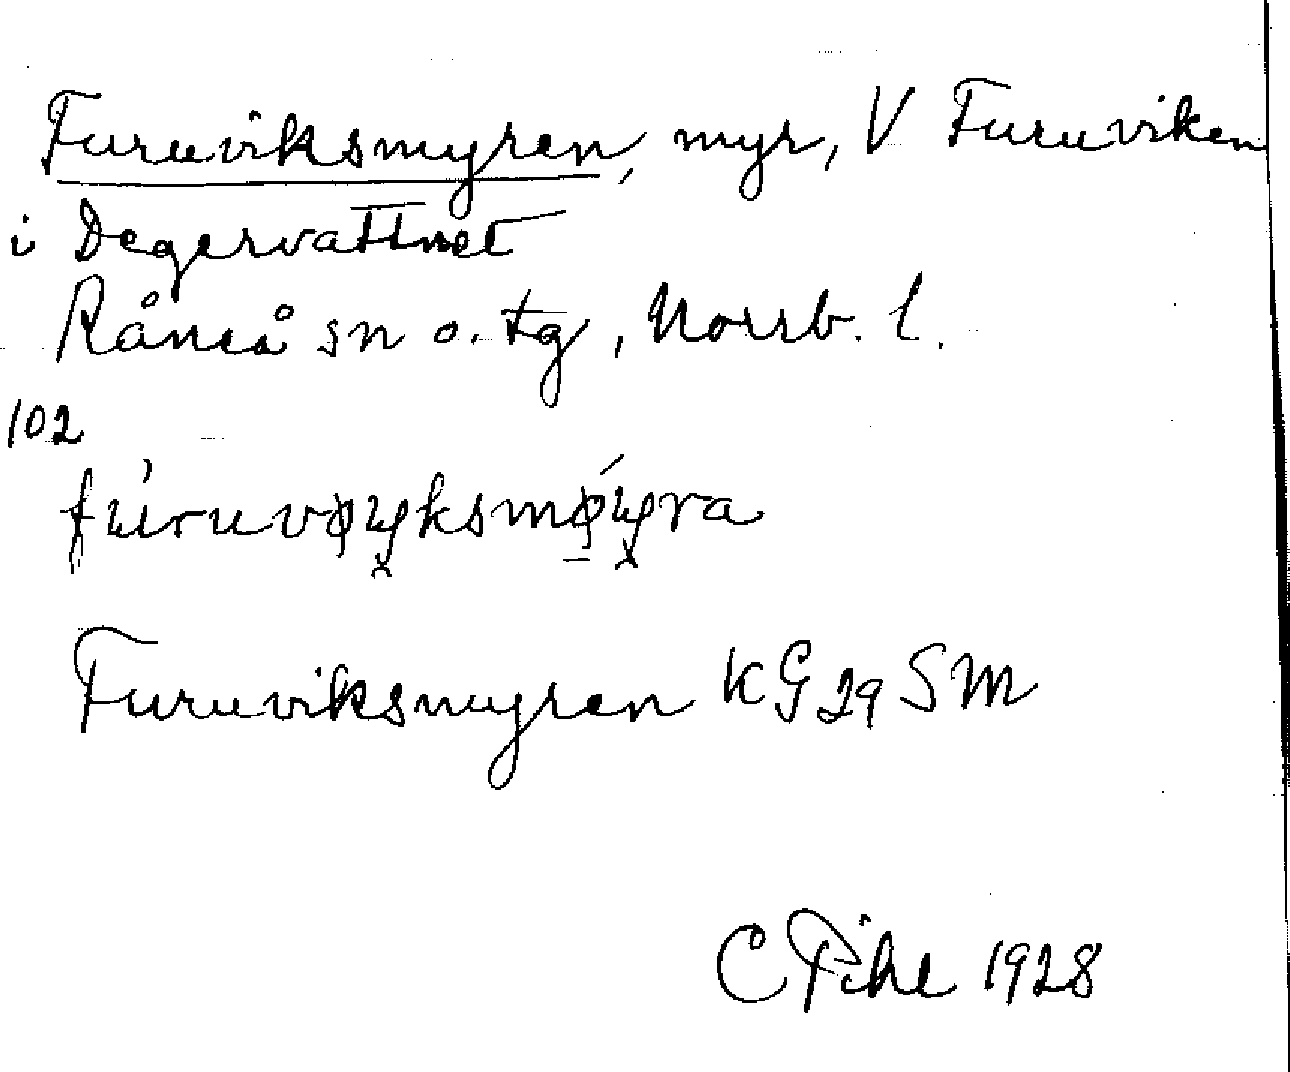 Furuviksmyren, myr, V Furuviken
i Degervattnet
Råneå sn o. tg, Norrb. l.
102
Furuviksmyren KG 29 SM
C Pihl 1928